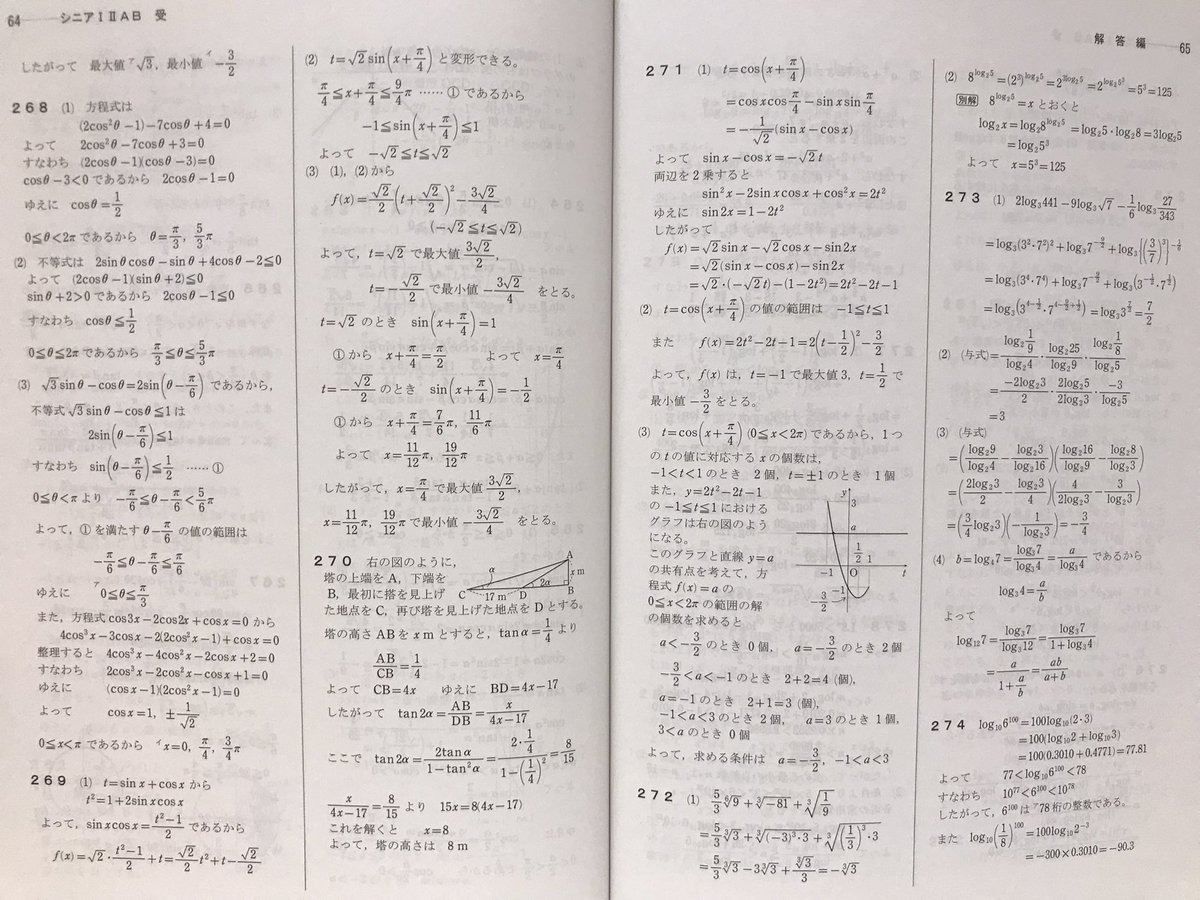 64 シニアⅠⅡAB 受
したがって 最大値 ア√3, 最小値 イ−3/2
268 (1) 方程式は
(2cos²θ−1)−7cosθ+4=0
よって 2cos²θ−7cosθ+3=0
すなわち (2cosθ−1)(cosθ−3)=0
cosθ−3<0 であるから 2cosθ−1=0
ゆえに cosθ=1/2
0≦θ<2π であるから θ=π/3, 5/3π
(2) 不等式は 2sinθcosθ−sinθ+4cosθ−2≦0
よって (2cosθ−1)(sinθ+2)≦0
sinθ+2>0 であるから 2cosθ−1≦0
すなわち cosθ≦1/2
0≦θ≦2π であるから π/3≦θ≦5/3π
(3) √3sinθ−cosθ=2sin(θ−π/6) であるから,
不等式 √3sinθ−cosθ≦1 は
2sin(θ−π/6)≦1
すなわち sin(θ−π/6)≦1/2 ……①
0≦θ<π より −π/6≦θ−π/6<5/6π
よって, ① を満たす θ−π/6 の値の範囲は
−π/6≦θ−π/6≦π/6
ゆえに ア0≦θ≦π/3
また, 方程式 cos3x−2cos2x+cosx=0 から
4cos³x−3cosx−2(2cos²x−1)+cosx=0
整理すると 4cos³x−4cos²x−2cosx+2=0
すなわち 2cos³x−2cos²x−cosx+1=0
ゆえに (cosx−1)(2cos²x−1)=0
よって cosx=1, ±1/√2
0≦x<π であるから イx=0, π/4, 3/4π
269 (1) t=sinx+cosx から
t²=1+2sinxcosx
よって, sinxcosx=(t²−1)/2 であるから
f(x)=√2·(t²−1)/2+t=√2/2t²+t−√2/2
(2) t=√2sin(x+π/4) と変形できる。
π/4≦x+π/4≦9/4π ……① であるから
−1≦sin(x+π/4)≦1
よって −√2≦t≦√2
(3) (1), (2) から
f(x)=√2/2(t+√2/2)²−3√2/4
(−√2≦t≦√2)
よって, t=√2 で最大値 3√2/2,
t=−√2/2 で最小値 −3√2/4 をとる。
t=√2 のとき sin(x+π/4)=1
① から x+π/4=π/2 よって x=π/4
t=−√2/2 のとき sin(x+π/4)=−1/2
① から x+π/4=7/6π, 11/6π
よって x=11/12π, 19/12π
したがって, x=π/4 で最大値 3√2/2,
x=11/12π, 19/12π で最小値 −3√2/4 をとる。
270 右の図のように,
塔の上端を A, 下端を
B, 最初に搭を見上げ
た地点をC, 再び塔を見上げた地点をDとする。
A
x m
α
2α
C
17 m
D
B
塔の高さ AB を x m とすると, tanα=1/4 より
AB/CB=1/4
よって CB=4x ゆえに BD=4x−17
したがって tan2α=AB/DB=x/(4x−17)
ここで tan2α=2tanα/(1−tan²α)=(2·1/4)/(1−(1/4)²)=8/15
x/(4x−17)=8/15 より 15x=8(4x−17)
これを解くと x=8
よって, 塔の高さは 8 m
解答編 65
271 (1) t=cos(x+π/4)
=cosxcosπ/4−sinxsinπ/4
=−1/√2(sinx−cosx)
よって sinx−cosx=−√2t
両辺を2乗すると
sin²x−2sinxcosx+cos²x=2t²
ゆえに sin2x=1−2t²
したがって
f(x)=√2sinx−√2cosx−sin2x
=√2(sinx−cosx)−sin2x
=√2·(−√2t)−(1−2t²)=2t²−2t−1
(2) t=cos(x+π/4) の値の範囲は −1≦t≦1
また f(x)=2t²−2t−1=2(t−1/2)²−3/2
よって, f(x) は, t=−1 で最大値 3, t=1/2 で
最小値 −3/2 をとる。
(3) t=cos(x+π/4) (0≦x<2π) であるから, 1つ
の t の値に対応する x の個数は,
−1<t<1 のとき 2個, t=±1 のとき 1個
また, y=2t²−2t−1
の −1≦t≦1 における
グラフは右の図のよう
になる。
このグラフと直線 y=a
の共有点を考えて, 方
程式 f(x)=a の
0≦x<2π の範囲の解
の個数を求めると
y
3
a
1/2
1
−1
O
t
−3/2
−1
a<−3/2 のとき 0個, a=−3/2 のとき 2個
−3/2<a<−1 のとき 2+2=4 (個),
a=−1 のとき 2+1=3 (個),
−1<a<3 のとき 2個, a=3 のとき 1個,
3<a のとき 0個
よって, 求める条件は a=−3/2, −1<a<3
272 (1) 5/3⁶√9+³√−81+³√(1/9)
=5/3³√3+³√((−3)³·3)+³√((1/3)³·3)
=5/3³√3−3³√3+³√3/3=−³√3
(2) 8^(log₂5)=(2³)^(log₂5)=2^(3log₂5)=2^(log₂5³)=5³=125
別解 8^(log₂5)=x とおくと
log₂x=log₂8^(log₂5)=log₂5·log₂8=3log₂5
=log₂5³
よって x=5³=125
273 (1) 2log₃441−9log₃√7−1/6log₃27/343
=log₃(3²·7²)²+log₃7^(−9/2)+log₃{(3/7)³}^(−1/6)
=log₃(3⁴·7⁴)+log₃7^(−9/2)+log₃(3^(−1/2)·7^(1/2))
=log₃(3^(4−1/2)·7^(4−9/2+1/2))=log₃3^(7/2)=7/2
(2) (与式)=(log₂1/9)/(log₂4)·(log₂25)/(log₂9)·(log₂1/8)/(log₂5)
=(−2log₂3)/2·(2log₂5)/(2log₂3)·(−3)/(log₂5)
=3
(3) (与式)
=(log₂9/log₂4−log₂3/log₂16)(log₂16/log₂9−log₂8/log₂3)
=(2log₂3/2−log₂3/4)(4/2log₂3−3/log₂3)
=(3/4log₂3)(−1/log₂3)=−3/4
(4) b=log₄7=log₃7/log₃4=a/log₃4 であるから
log₃4=a/b
よって
log₁₂7=log₃7/log₃12=log₃7/(1+log₃4)
=a/(1+a/b)=ab/(a+b)
274 log₁₀6¹⁰⁰=100log₁₀(2·3)
=100(log₁₀2+log₁₀3)
=100(0.3010+0.4771)=77.81
よって 77<log₁₀6¹⁰⁰<78
すなわち 10⁷⁷<6¹⁰⁰<10⁷⁸
したがって, 6¹⁰⁰ は ア78 桁の整数である。
また log₁₀(1/8)¹⁰⁰=100log₁₀2⁻³
=−300×0.3010=−90.3